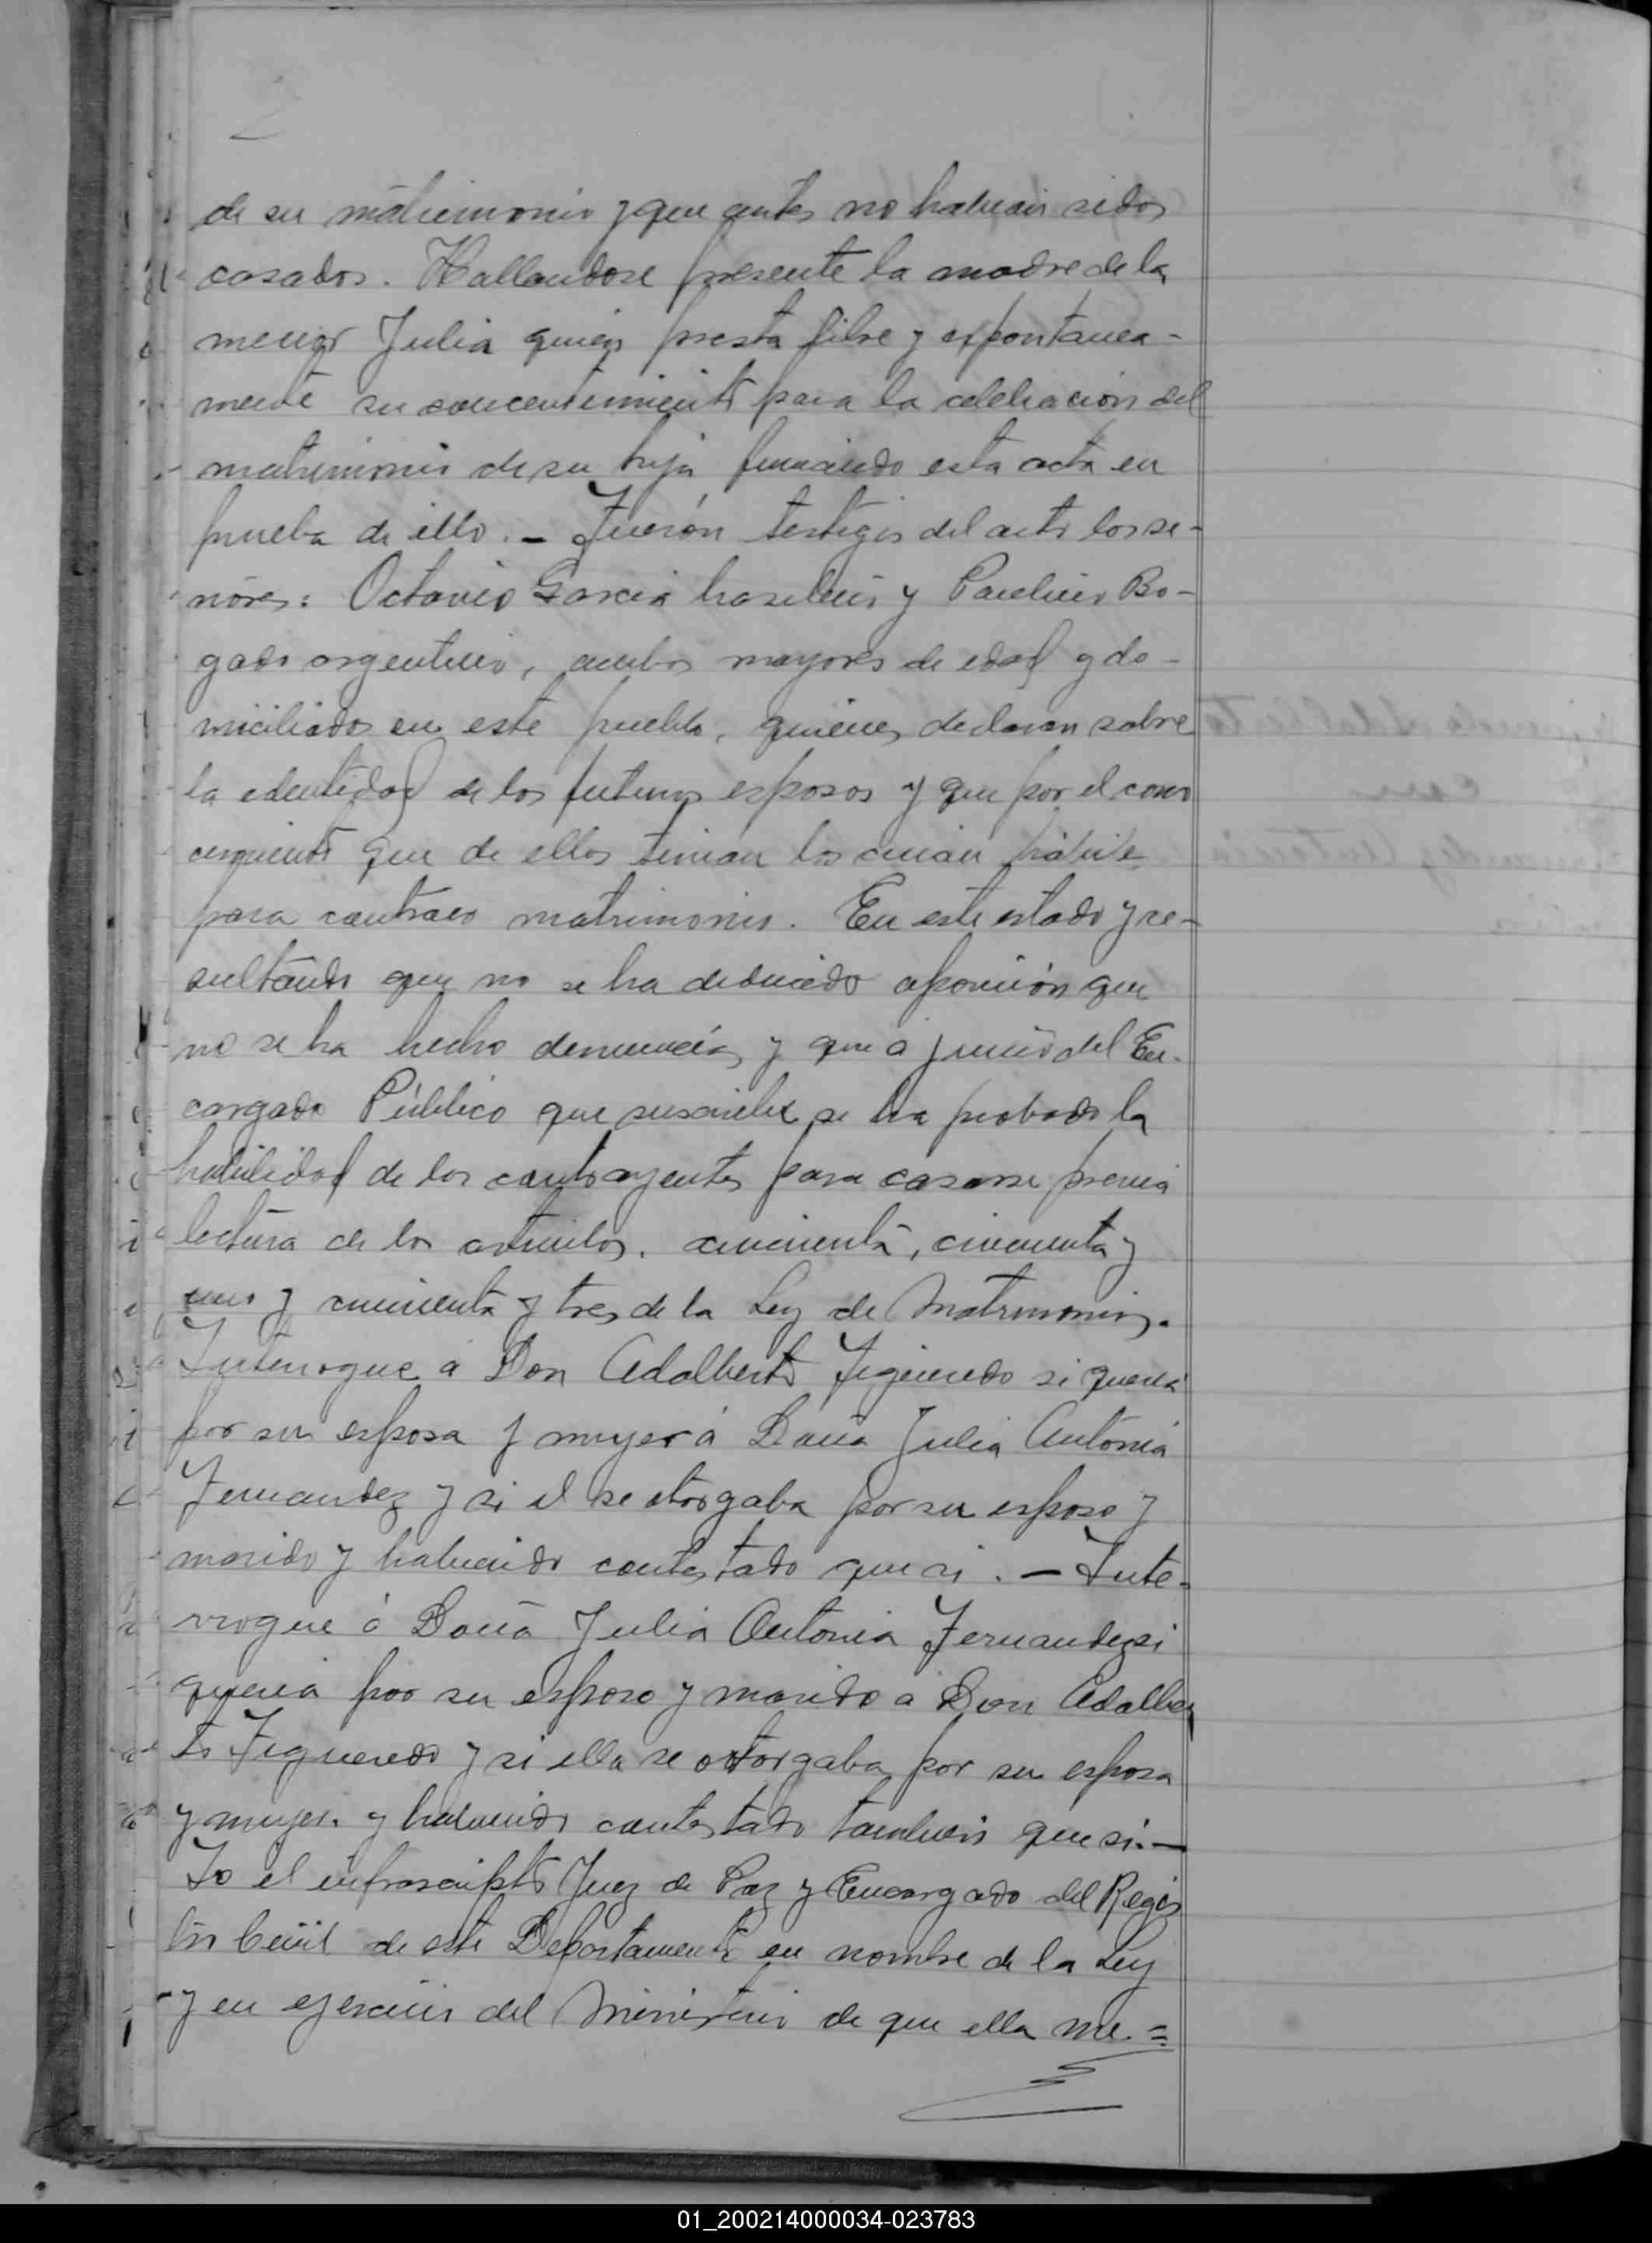 de su matrimonio y que antes no habian sidos
casados. Hallandose presente la madre de la
menor Julia quien presta libre y expontanea-
mente su concentimiento para la celebracion del
matrimonio de su hija firmando esta acta en
prueba de ello. - Fuerón testigos del acto los se-
ñores: Octavio Garcia brasilero y Paulino Bo-
gado argentino, ambos mayores de edad y do-
miciliados en este pueblo, quienes declaran sobre
la identidad de los futuros esposos y que por el cono
cimiento que de ellos tenian los creian habiles
para contraer matrimonio. En este estado y re-
sultando que no se ha deducido oposición que
no se ha hecho denuncia, y que á juicio del En-
cargado Público que suscribe se ha probado la
habilidad de los contrayentes para casarse previa
lectura de los articulos, cincuenta, cincuenta y
uno y cincuenta y tres de la Ley de Matrimonio.
Interrogue a Don Adalberto Figueredo si queria
por su esposa y mujer á Doña Julia Antonia
Fernandez y si el se otorgaba por su esposo y
marido y habiendo contestado que si. - Inte-
rrogue á Doña Julia Antonia Fernandez si
queria por su esposo y marido a Don Adalber
to Figueredo y si ella se otorgaba por su esposa
y mujer. y habiendo contestado tambien que si. -
Yo el infrascripto Juez de Paz y Encargado del Regis
tro Civil de este Departamento en nombre de la Ley
y en ejercicio del Ministerio de que ella me =
01_200214000034-023783